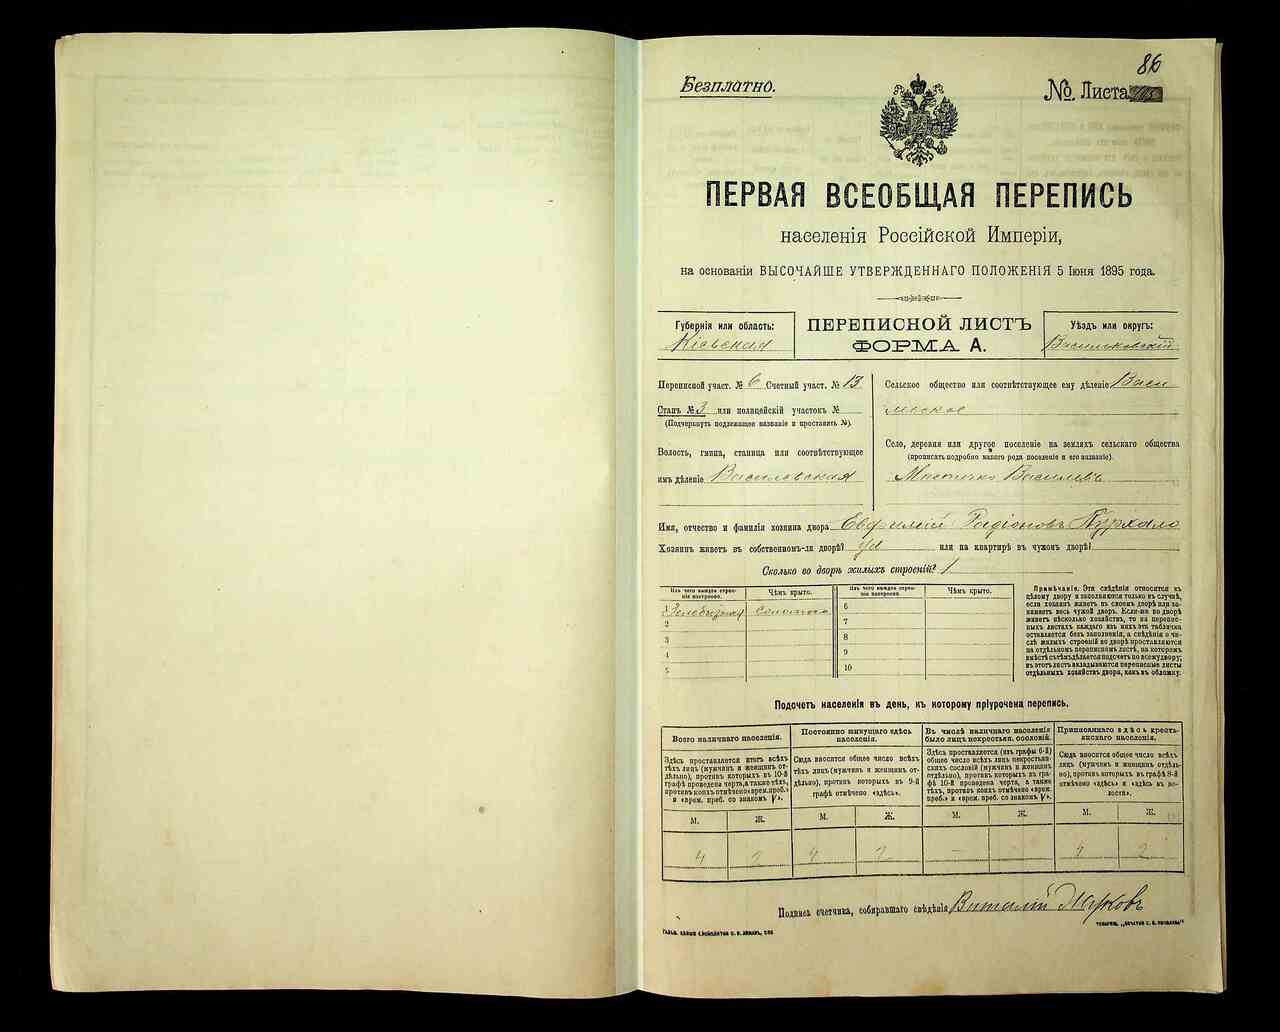 86
Безплатно.
№. Листа
ПЕРВАЯ ВСЕОБЩАЯ ПЕРЕПИСЬ
населенія Россійской Имперіи,
на основаніи ВЫСОЧАЙШЕ УТВЕРЖДЕННАГО ПОЛОЖЕНІЯ 5 Іюня 1895 года.
Губернія или область:
Кіевская
ПЕРЕПИСНОЙ ЛИСТЪ
ФОРМА А.
Уѣздъ или округъ:
Васильковскій
Переписной участ. № 6 Счетный участ. № 13
Станъ № 3 или полицейскій участокъ №
(Подчеркнуть подлежащее названіе и проставить №).
Волость, гмина, станица или соотвѣтствующее
имъ дѣленіе Василевская
Сельское общество или соотвѣтствующее ему дѣленіе Васи
левское
Село, деревня или другое поселеніе на земляхъ сельскаго общества
(прописать подробно какого рода поселеніе и его названіе).
Мѣстечко Василевъ
Имя, отчество и фамилія хозяина двора Евфимій Радіоновъ
Хозяинъ живетъ въ собственномъ-ли дворѣ? да или на квартирѣ въ чужом дворѣ?
Сколько во дворѣ жилыхъ строеній? 1
Изъ чего каждое строеніе построено.
Чѣмъ крыто.
Изъ чего каждое строеніе построено.
Чѣмъ крыто.
1 соломою
2
3
4
5
6
7
8
9
10
Примѣчаніе. Эти свѣдѣнія относятся къ
цѣлому двору и заполняются только въ случаѣ,
если хозяинъ живетъ въ своемъ дворѣ или занимаетъ весь чужой дворъ. Если-же во дворѣ
живетъ нѣсколько хозяйствъ, то на переписныхъ листахъ каждаго изъ нихъ эта табличка
оставляется безъ заполненія, а свѣдѣнія о числѣ жилыхъ строеній во дворѣ проставляются
на отдѣльномъ переписномъ листѣ, на которомъ
вмѣстѣ съ тѣмъ дѣлается подсчетъ по всему двору;
въ этотъ листъ вкладываются переписные листы
отдѣльныхъ хозяйствъ двора, какъ въ обложку.
Подсчетъ населенія въ день, къ которому пріурочена перепись.
Всего наличнаго населенія.
Здѣсь проставляется итогъ всѣхъ
тѣхъ лицъ (мужчинъ и женщинъ отдѣльно), противъ которыхъ въ 10-й
графѣ проведена черта, а также тѣхъ,
противъ коихъ отмѣчено «врем. преб.»
и «врем. преб. со знакомъ V».
М. Ж.
4 2
Постоянно живущаго здѣсь
населенія.
Сюда вносится общее число всѣхъ
тѣхъ лицъ (мужчинъ и женщинъ отдѣльно), противъ которыхъ въ 9-й
графѣ отмѣчено «здѣсь».
М. Ж.
4 2
Въ числѣ наличнаго населенія
было лицъ некрестьян. сословій.
Здѣсь проставляется (изъ графы 6-й)
общее число всѣхъ лицъ некрестьянскихъ сословій (мужчинъ и женщинъ
отдѣльно), противъ которыхъ въ графѣ 10-й проведена черта, а также
тѣхъ, противъ коихъ отмѣчено «врем.
преб.» и «врем. преб. со знакомъ V».
М. Ж.
– –
Приписаннаго здѣсь крестьянскаго населенія.
Сюда вносится общее число всѣхъ
лицъ (мужчинъ и женщинъ отдѣльно), противъ которыхъ въ графѣ 8-й
отмѣчено «здѣсь» и «здѣсь въ волости».
М. Ж.
4 2
Подпись счетчика, собиравшаго свѣдѣнія Виталій